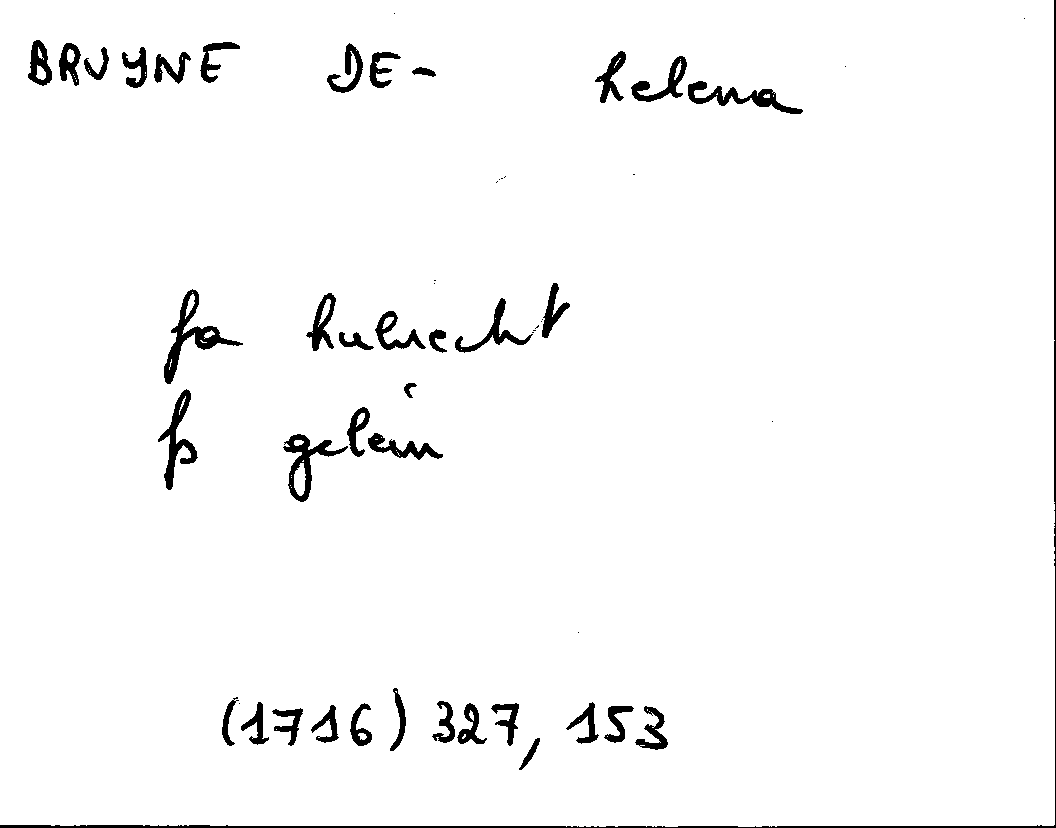 BRUYNE DE- helena
fa hubrecht
fs gelein
(1716) 327, 153